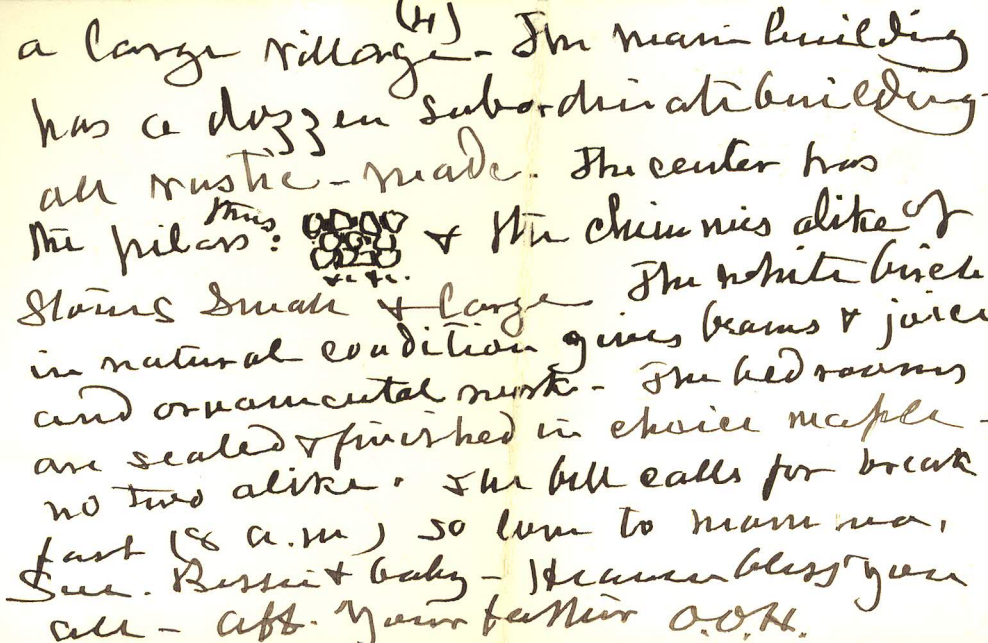 (4)
a large village - The main building
has a dozzen subordinate building
all rustic-made. The center has
the pilars thus: & the chimnies alike of
Stones Small & large The white birch
in natural condition gives beams & joice
and ornamental work - The bedrooms
are sealed & finished in choice maple -
no two alike. The bell calls for break
fast (8 a.m) so love to mamma,
Sue. Bessie & baby - Heaven bless you
all - Aff. Your father O.O.H.